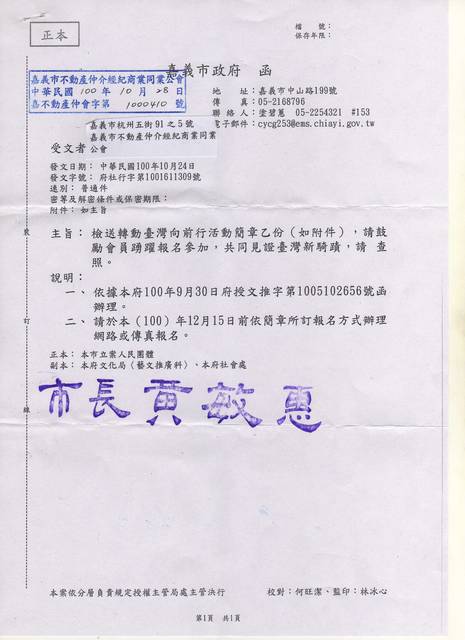 檔　　號：
保存年限：
正本
嘉義市政府　函
嘉義市不動產仲介經紀商業同業公會
中華民國 100 年 10 月 28 日
嘉不動產仲會字第 1000410 號
地　　址：嘉義市中山路199號
傳　　真：05-2168796
聯 絡 人：塗碧蕙　05-2254321　#153
電子郵件：cycg253@ems.chiayi.gov.tw
嘉義市杭州五街91之5號
嘉義市不動產仲介經紀商業同業
受文者：公會
發文日期：中華民國100年10月24日
發文字號：府社行字第1001611309號
速別：普通件
密等及解密條件或保密期限：
附件：如主旨
主旨：檢送轉動臺灣向前行活動簡章乙份（如附件），請鼓
勵會員踴躍報名參加，共同見證臺灣新騎蹟，請　查
照。
說明：
一、依據本府100年9月30日府授文推字第1005102656號函
辦理。
二、請於本（100）年12月15日前依簡章所訂報名方式辦理
網路或傳真報名。
正本：本市立案人民團體
副本：本府文化局（藝文推廣科）、本府社會處
市長黃敏惠
裝
訂
線
本案依分層負責規定授權主管局處主管決行
校對：何旺潔、監印：林冰心
第1頁　共1頁